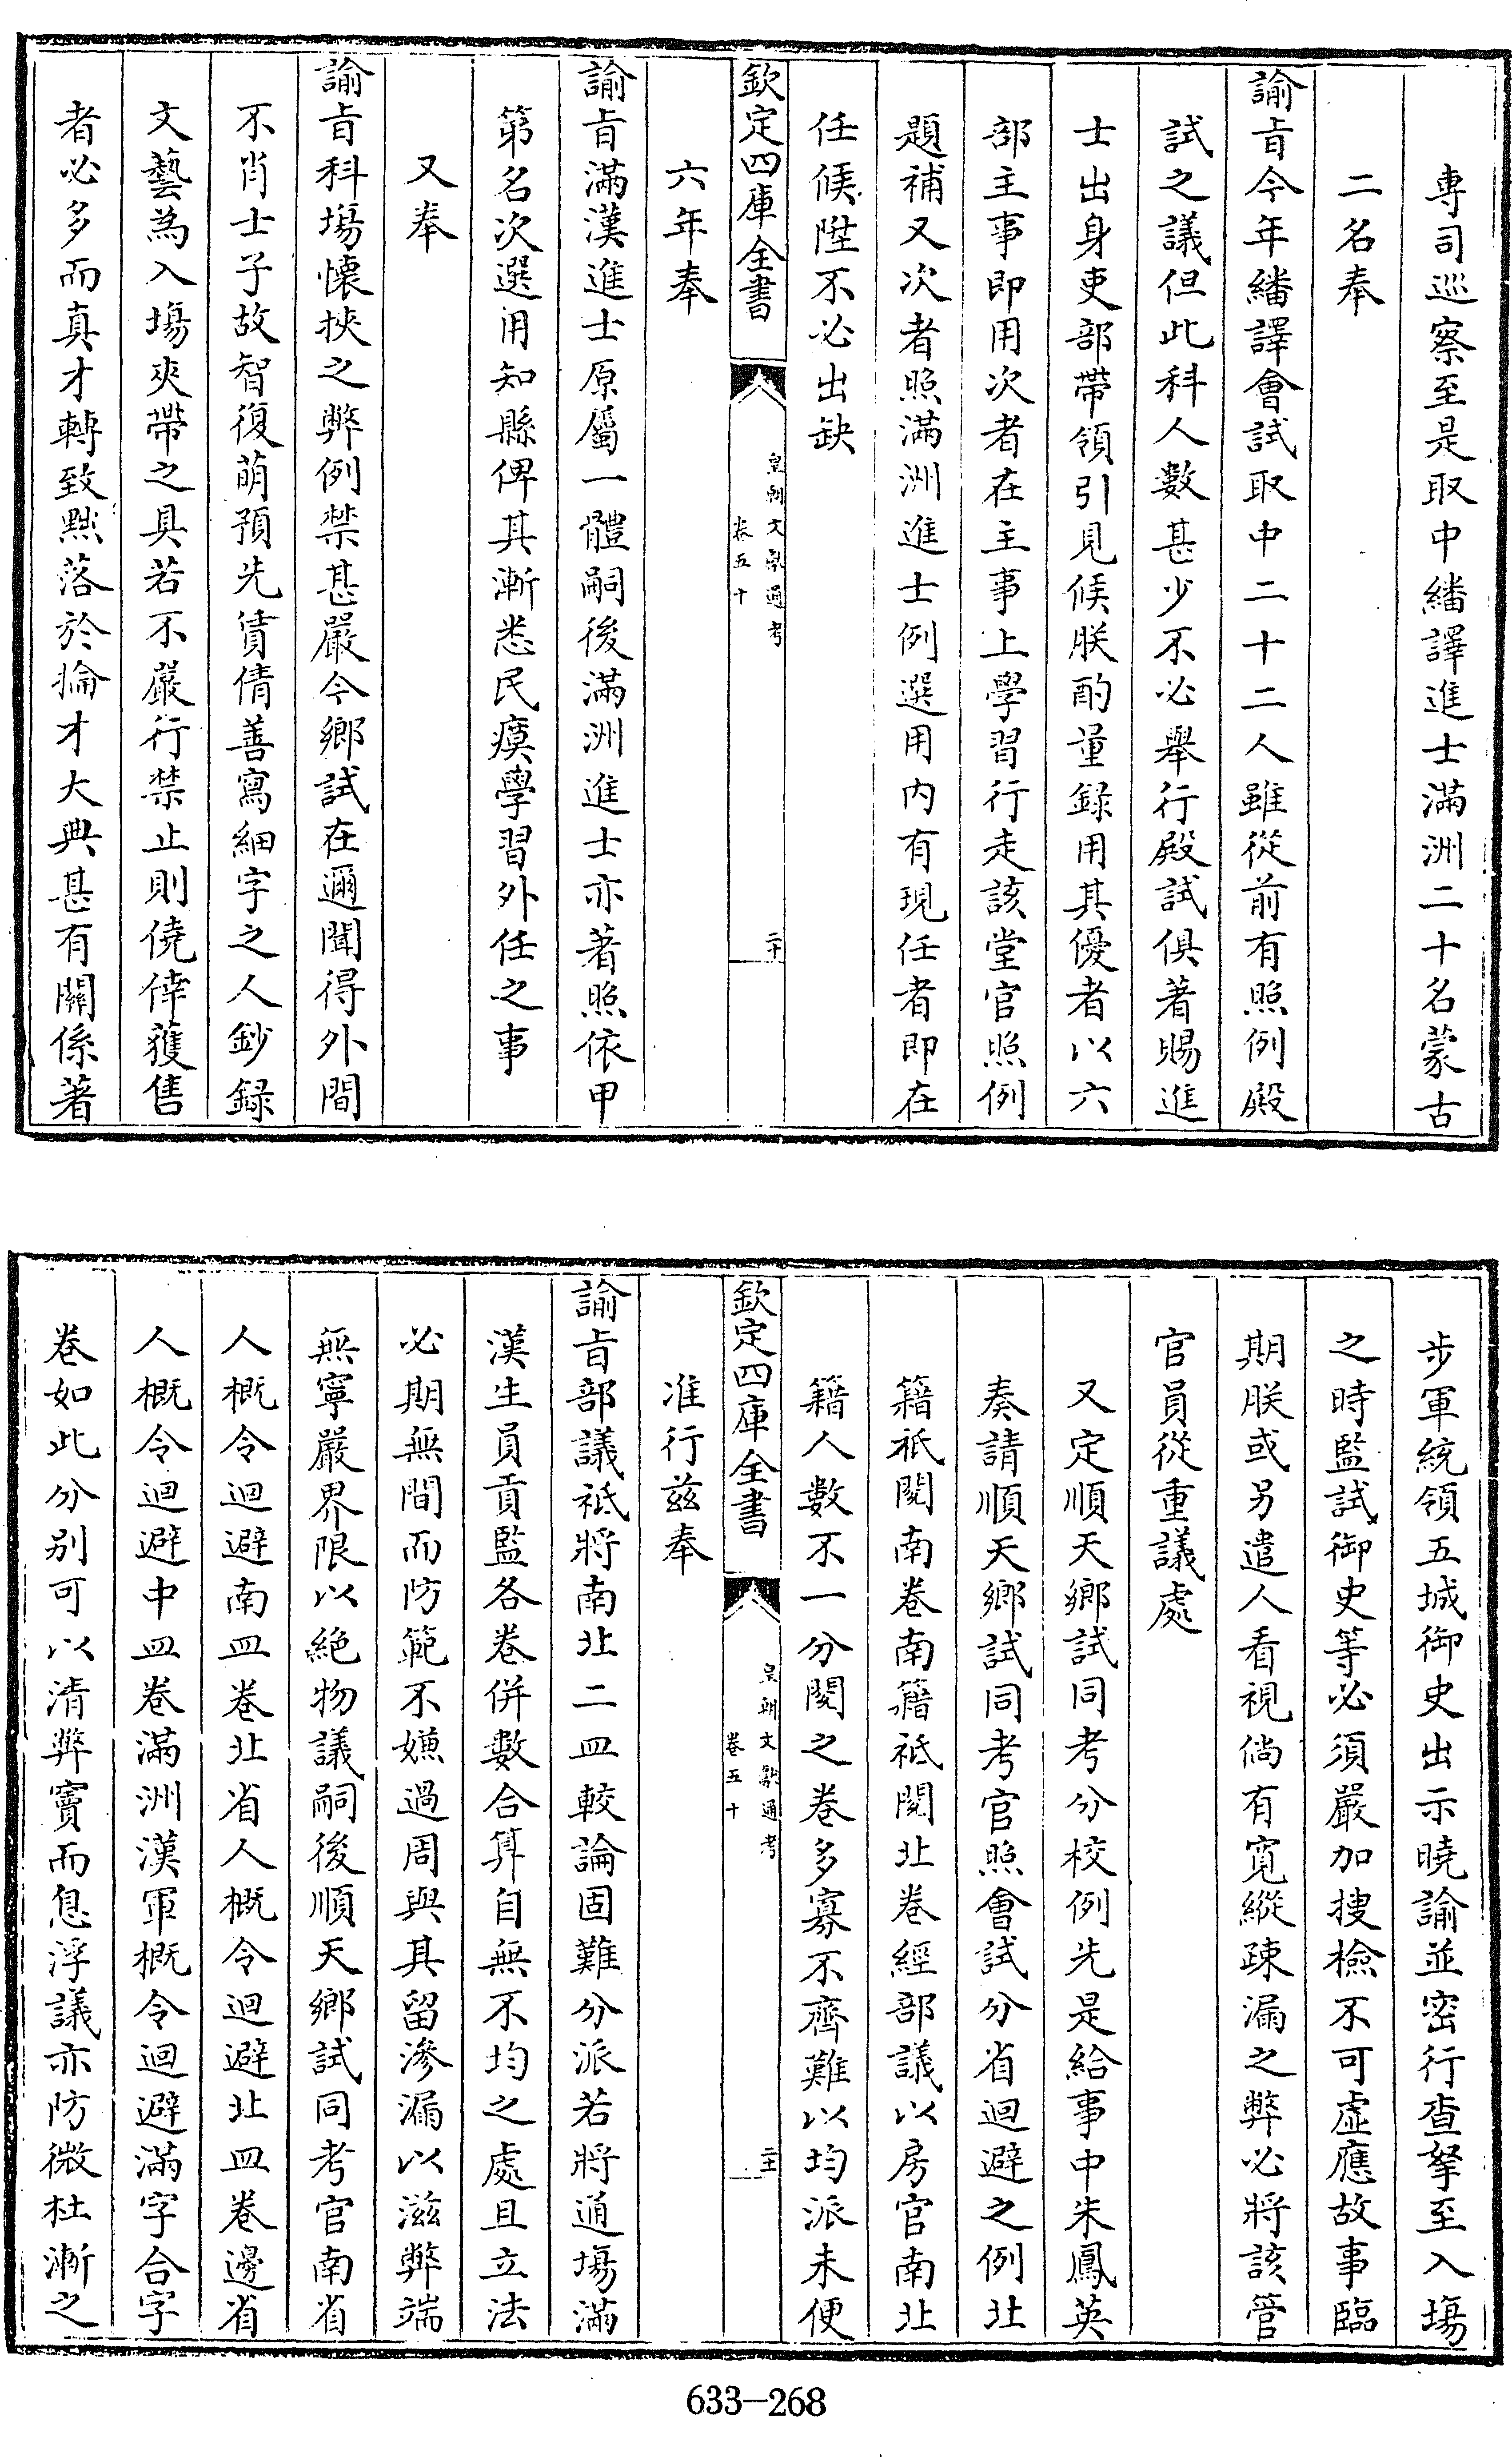 專司巡察至是取中繙譯進士滿洲二十名蒙古
二名奉
諭旨今年繙譯會試取中二十二人雖從前有照例殿
試之議但此科人數甚少不必舉行殿試俱著賜進
士出身吏部帶領引見候朕酌量録用其優者以六
部主事即用次者在主事上學習行走該堂官照例
題補又次者照滿洲進士例選用内有現任者即在
任候陞不必出缺
欽定四庫全書
皇朝文獻通考
卷五十
二十
六年奉
諭旨滿漢進士原屬一體嗣後滿洲進士亦著照依甲
第名次選用知縣俾其漸悉民瘼學習外任之事
又奉
諭旨科場懷挾之弊例禁甚嚴今鄉試在邇聞得外間
不肖士子故智復萌預先賃倩善寫細字之人鈔録
文藝為入場夾帶之具若不嚴行禁止則僥倖獲售
者必多而真才轉致黜落於掄才大典甚有關係著
步軍統領五城御史出示曉諭並密行查拏至入場
之時監試御史等必須嚴加搜檢不可虛應故事臨
期朕或另遣人看視倘有寬縱疎漏之弊必將該管
官員從重議處
又定順天鄉試同考分校例先是給事中朱鳳英
奏請順天鄉試同考官照會試分省迴避之例北
籍祇閱南卷南籍祇閱北卷經部議以房官南北
籍人數不一分閱之卷多寡不齊難以均派未便
欽定四庫全書
皇朝文獻通考
卷五十
二十一
准行兹奉
諭旨部議祗將南北二皿較論固難分派若將通場滿
漢生員貢監各卷併數合算自無不均之處且立法
必期無間而防範不嫌過周與其留滲漏以滋弊端
無寧嚴界限以絶物議嗣後順天鄉試同考官南省
人概令迴避南皿卷北省人概令迴避北皿卷邊省
人概令迴避中皿卷滿洲漢軍概令迴避滿字合字
卷如此分别可以清弊竇而息浮議亦防微杜漸之
633-268